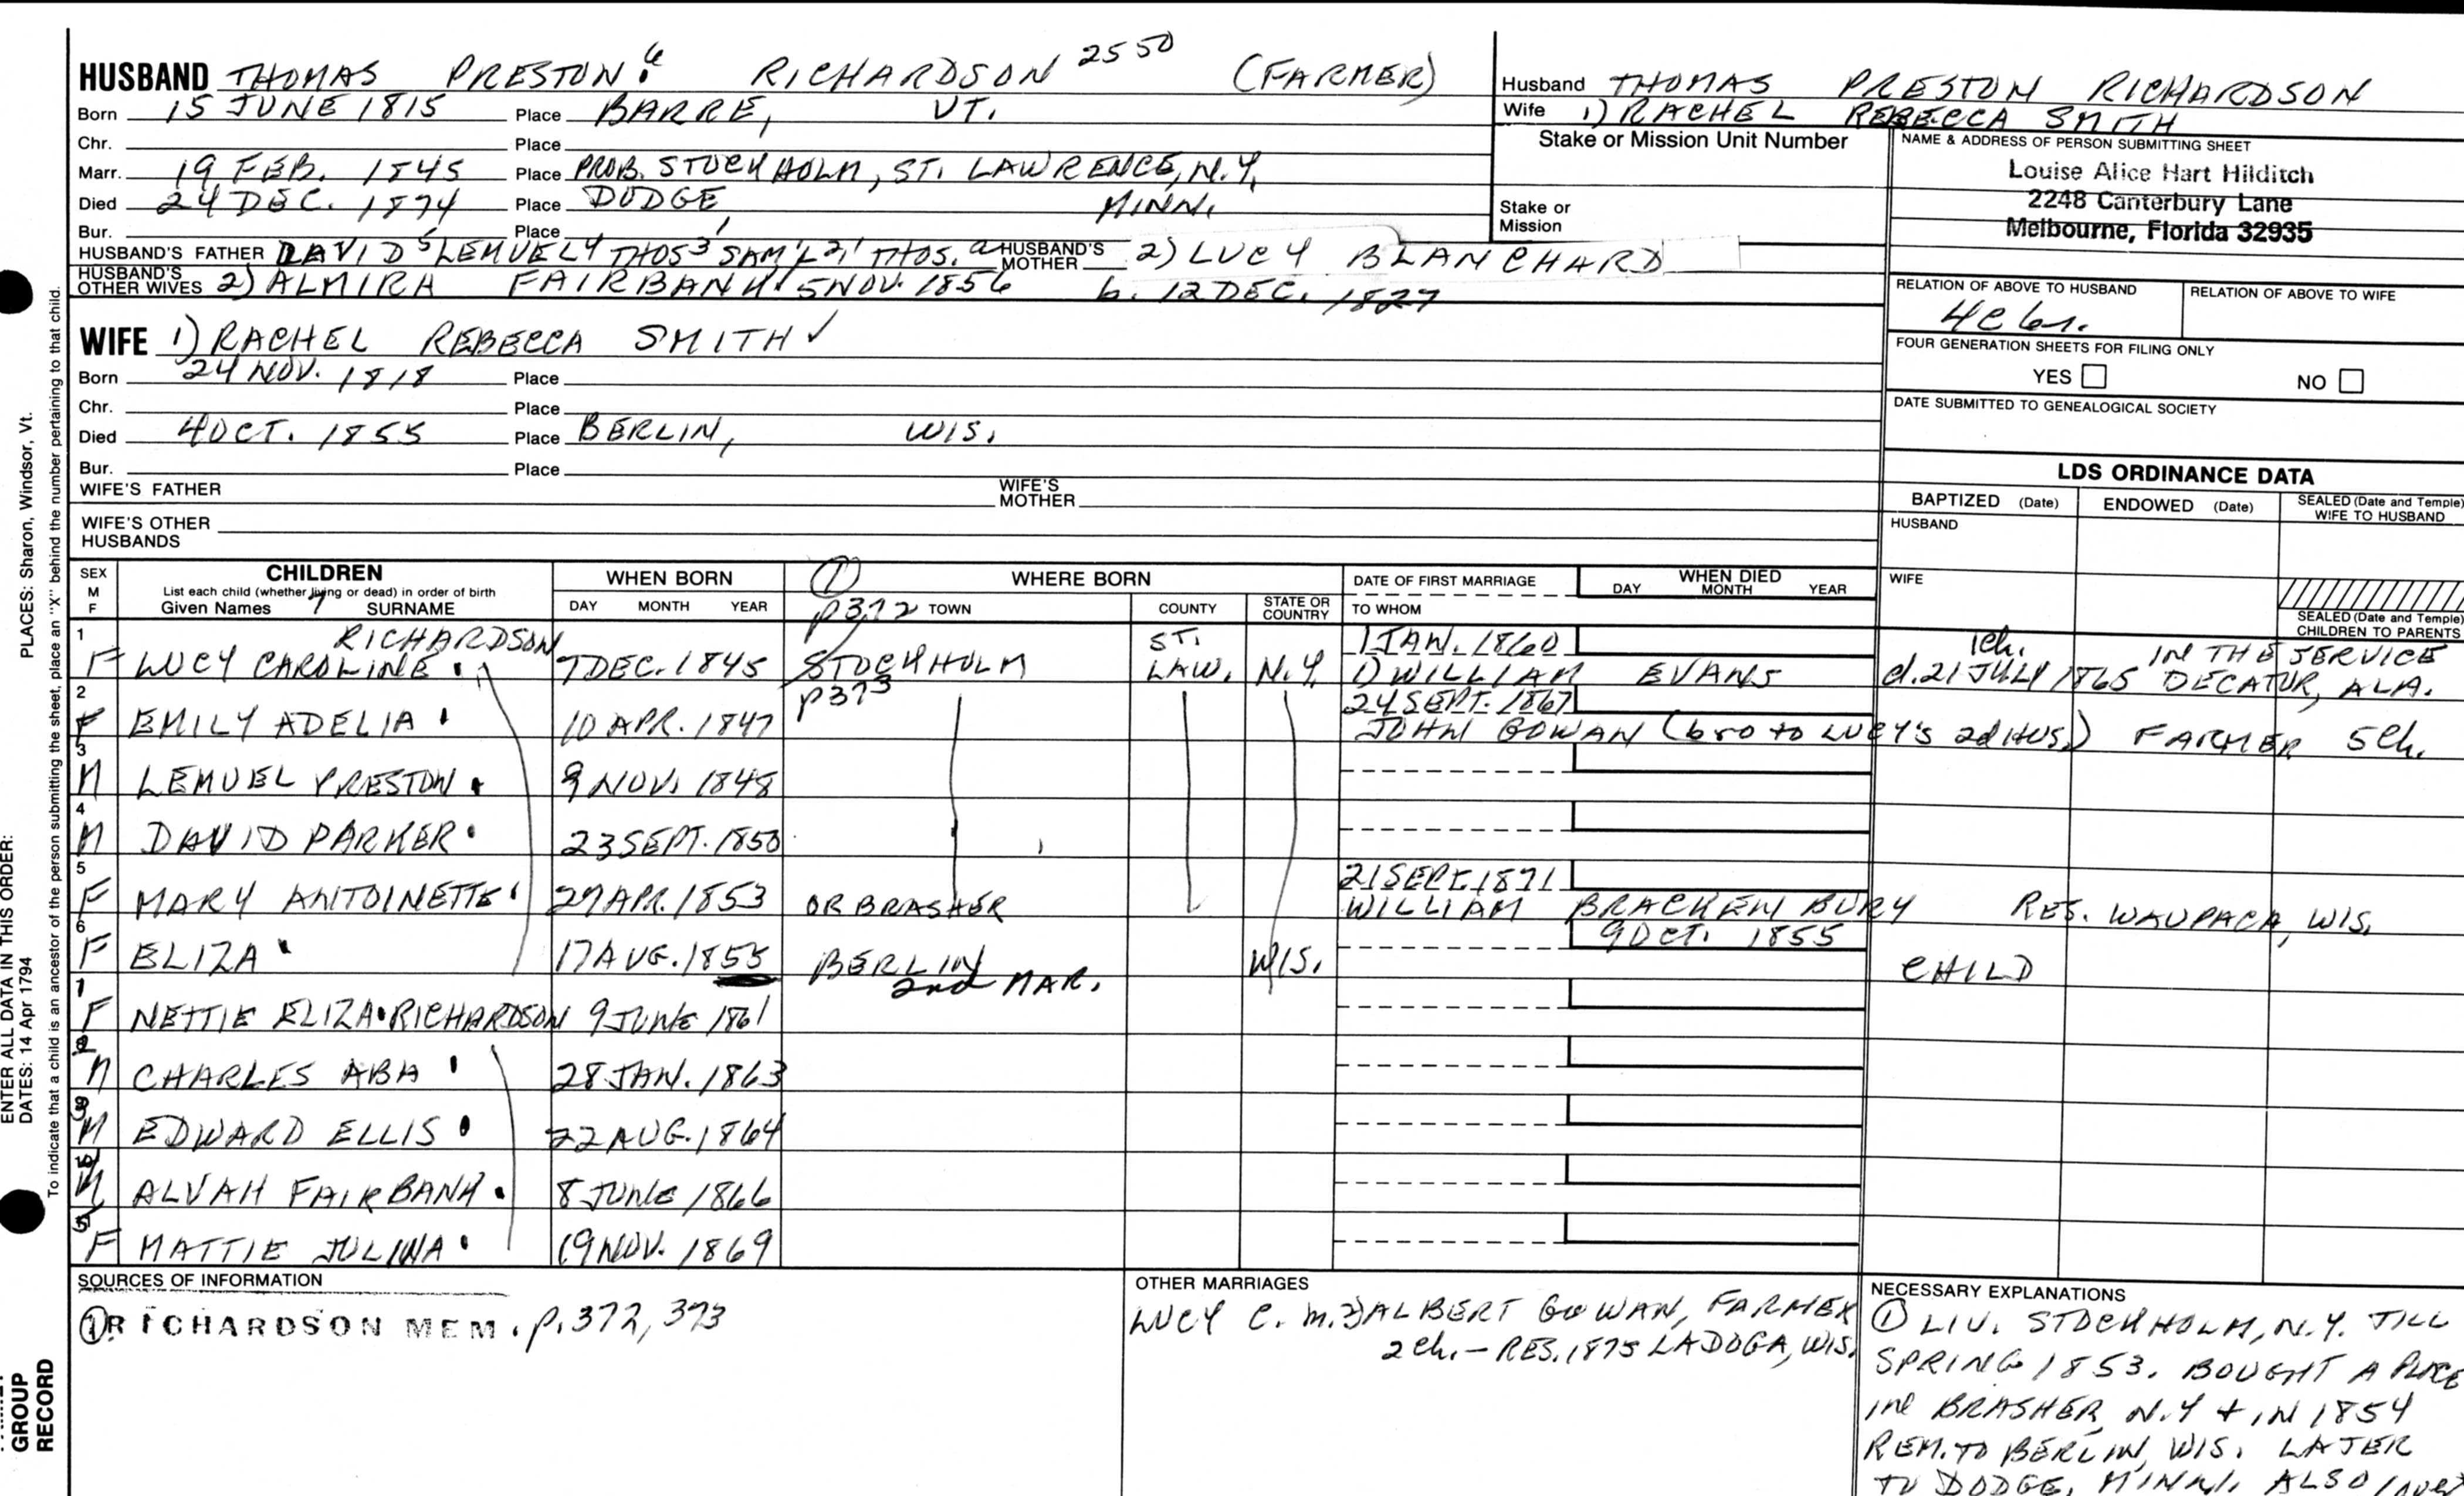 HUSBAND THOMAS PRESTON 6 RICHARDSON 2550 (FARMER)
Born 15 JUNE 1815 Place BARRE, VT.
Chr. Place
Marr. 19 FEB. 1845 Place PROB. STOCKHOLM, ST. LAWRENCE, N.Y.
Died 24 DEC. 1874 Place DODGE, MINN.
Bur. Place
HUSBAND'S FATHER DAVID 5 LEMUEL 4 THOS 3 SAM'L 2 THOS. HUSBAND'S MOTHER 2) LUCY BLANCHARD
HUSBAND'S OTHER WIVES 2) ALMIRA FAIRBANK 5 NOV. 1856 b. 12 DEC. 1827
Husband THOMAS PRESTON RICHARDSON
Wife 1) RACHEL REBECCA SMITH
Stake or Mission Unit Number
Stake or Mission
NAME & ADDRESS OF PERSON SUBMITTING SHEET
Louise Alice Hart Hilditch
2248 Canterbury Lane
Melbourne, Florida 32935
RELATION OF ABOVE TO HUSBAND RELATION OF ABOVE TO WIFE
4c 6r.
FOUR GENERATION SHEETS FOR FILING ONLY
YES NO
DATE SUBMITTED TO GENEALOGICAL SOCIETY
WIFE 1) RACHEL REBECCA SMITH ✓
Born 24 NOV. 1818 Place
Chr. Place
Died 4 OCT. 1855 Place BERLIN, WIS.
Bur. Place
WIFE'S FATHER WIFE'S MOTHER
WIFE'S OTHER HUSBANDS
LDS ORDINANCE DATA
BAPTIZED (Date) ENDOWED (Date) SEALED (Date and Temple) WIFE TO HUSBAND
HUSBAND
WIFE
SEALED (Date and Temple) CHILDREN TO PARENTS
SEX M F CHILDREN WHEN BORN 1 WHERE BORN DATE OF FIRST MARRIAGE WHEN DIED
List each child (whether living or dead) in order of birth
Given Names 7 SURNAME DAY MONTH YEAR p372 TOWN COUNTY STATE OR COUNTRY TO WHOM DAY MONTH YEAR
1 RICHARDSON ST. 1 JAN. 1860 1ch. IN THE SERVICE
F LUCY CAROLINE 7 DEC. 1845 STOCKHOLM LAW. N.Y. 1) WILLIAM EVANS d. 21 JULY 1865 DECATUR, ALA.
2 p373 24 SEPT. 1867
F EMILY ADELIA 10 APR. 1847 JOHN GOWAN (bro to LUCY'S 2d HUS.) FARMER 5ch.
3
M LEMUEL PRESTON 9 NOV. 1848
4
M DAVID PARKER 23 SEPT. 1850
5 21 SEPT. 1871
F MARY ANTOINETTE 27 APR. 1853 OR BRASHER WILLIAM BRACKEN BURY RES. WAUPACA, WIS.
6 9 OCT. 1855
F ELIZA 17 AUG. 1855 BERLIN WIS. CHILD
2nd MAR.
1
F NETTIE ELIZA RICHARDSON 9 JUNE 1861
2
M CHARLES ABA 28 JAN. 1863
3
M EDWARD ELLIS 22 AUG. 1864
M ALVAH FAIRBANK 8 JUNE 1866
5
F MATTIE JULINA 19 NOV. 1869
SOURCES OF INFORMATION
1 RICHARDSON MEM. p. 372, 373
OTHER MARRIAGES
LUCY C. m. 2) ALBERT GOWAN, FARMER
2 ch. - RES. 1875 LADOGA, WIS.
NECESSARY EXPLANATIONS
1 LIV. STOCKHOLM, N.Y. TILL
SPRING 1853. BOUGHT A PLACE
IN BRASHER N.Y + IN 1854
REM. TO BERLIN, WIS. LATER
TO DODGE, MINN. ALSO
ENTER ALL DATA IN THIS ORDER:
DATES: 14 Apr 1794 PLACES: Sharon, Windsor, Vt.
To indicate that a child is an ancestor of the person submitting the sheet, place an "X" behind the number pertaining to that child.
GROUP
RECORD